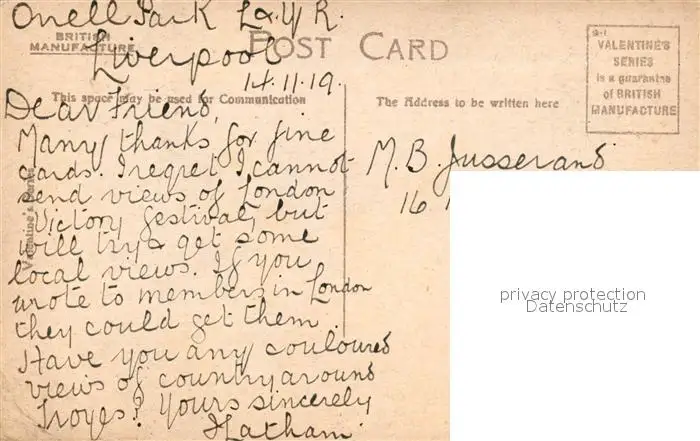 Orrell Park L & Y R.
BRITISH
MANUFACTURE
Liverpool
POST CARD
14.11.19.
This space may be used for Communication
The Address to be written here
VALENTINE'S
SERIES
is a guarantee
of BRITISH
MANUFACTURE
Valentine's Series
Dear Friend,
Many thanks for fine
cards. I regret I cannot
send views of London
Victory festival, but
will try & get some
local views. If you
wrote to members in London
they could get them.
Have you any couloured
views of country around
Troyes? Yours sincerely
Latham
M. B. Jusserand
16
privacy protection
Datenschutz